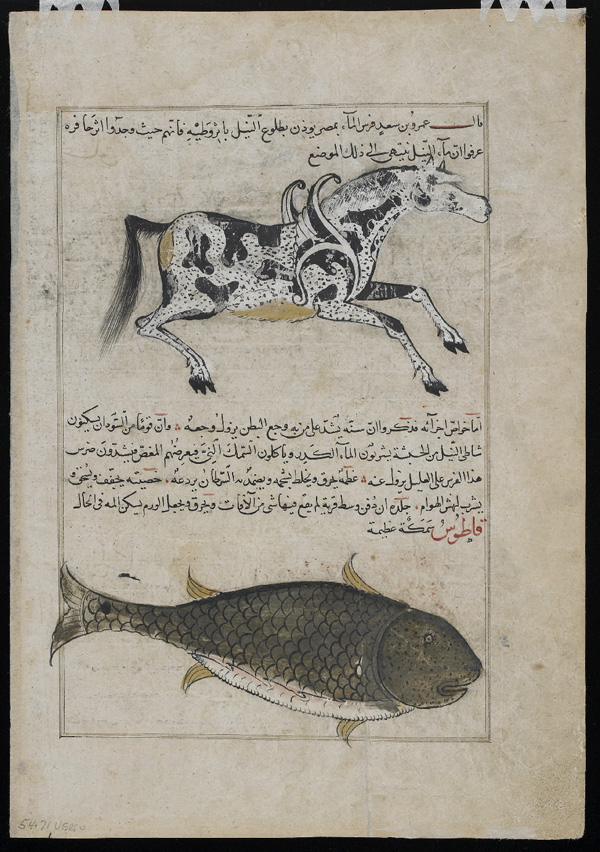 قال عمرو بن سعد فرس الماء بمصر يوذن بطلوع النيل باثر وطئه فانهم حيث وجدوا اثر حافره
عرفوا ان ماء النيل ينتهى الى ذلك الموضع
اما خواص اجزائه فذكروا ان سنه يشد على من به وجع البطن يزول وجعه وان قوما من السودان يسكنون
شاطى النيل من الحبشة يشربون الماء الكدر وياكلون السمك النى فيعرضهم المغص فيشدون ضرس
هذا الفرس على العليل يزول عنه عظمه يحرق ويخلط بشحمه ويضمد به السرطان يردعه خصيته يجفف ويسحق و
يشرب لنهش الهوام جلده ان دفن وسط قرية لم يقع فيها شى من الافات ويحرق ويجعل الورم يسكن المه فى الحال
قاطوس سمكة عظيمة
54.71 VERSO